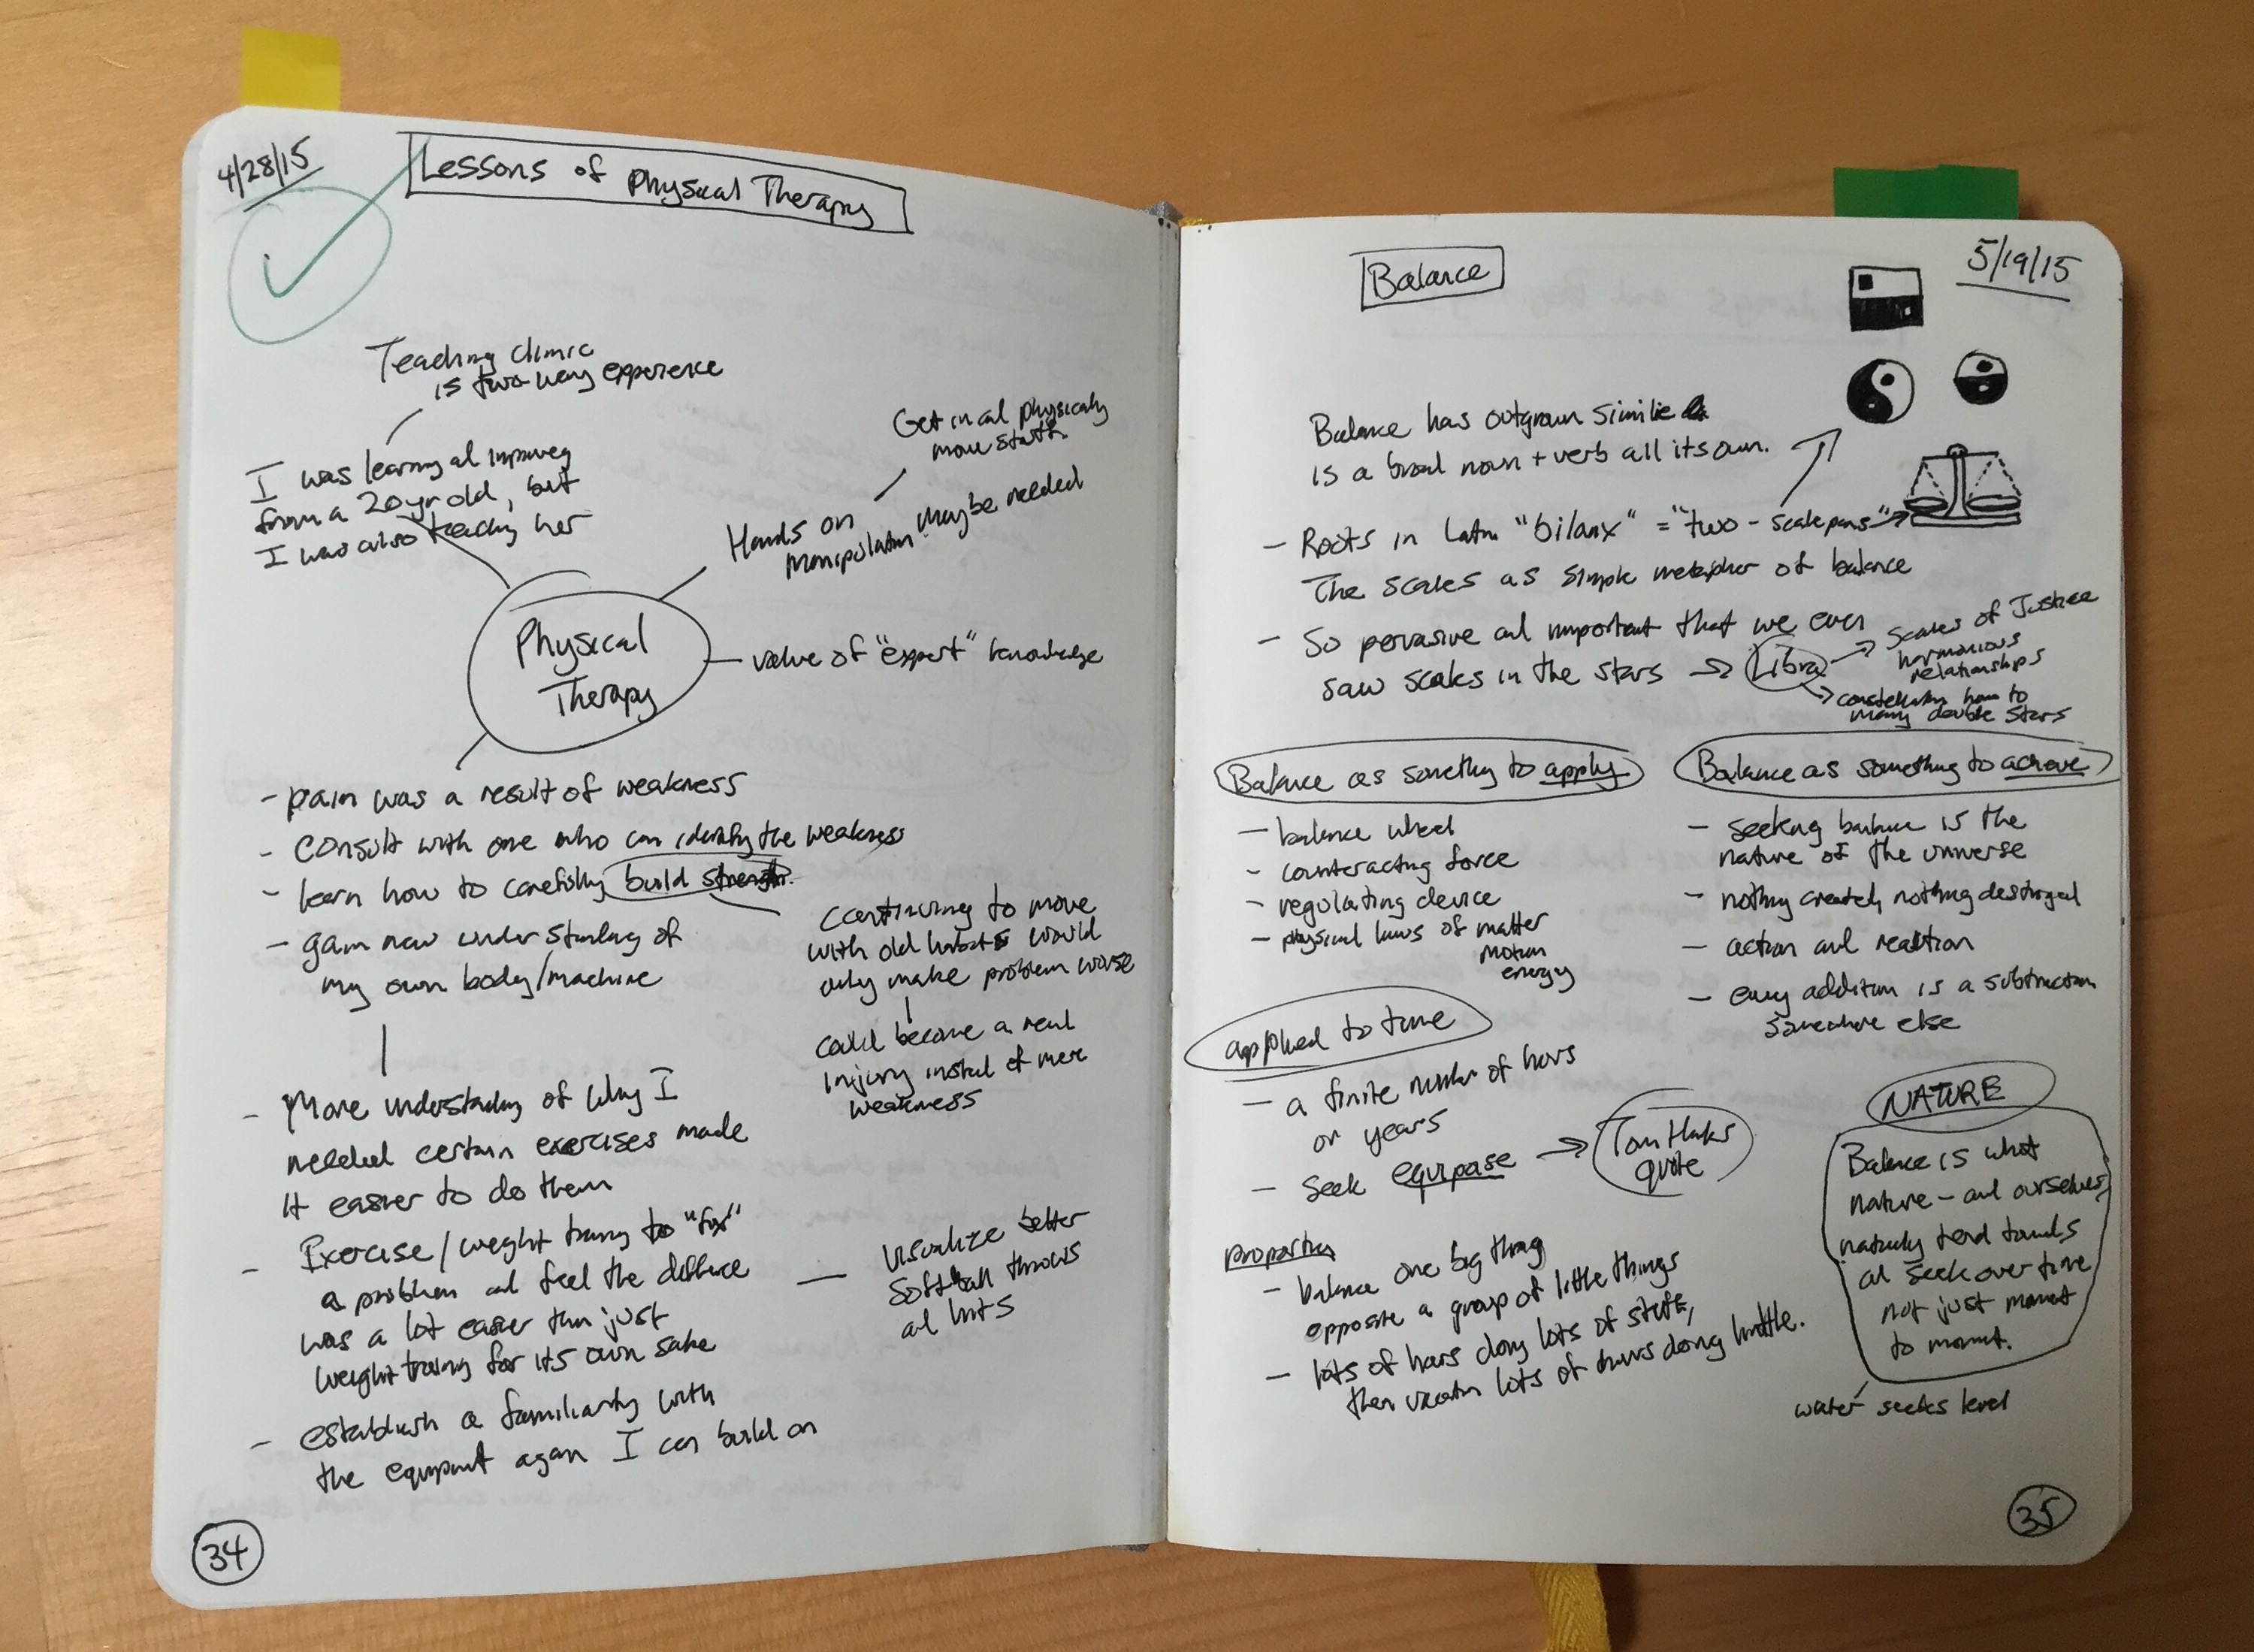 4/28/15
Lessons of Physical Therapy
Teaching clinic
is two-way experience
I was learning and improving
from a 20 yr old, but
I was also teaching her
Get in and physically
move stuff.
Hands on
manipulation maybe needed
Physical
Therapy
value of "expert" knowledge
- pain was a result of weakness
- consult with one who can identify the weakness
- learn how to carefully build strength.
- gain new understanding of
my own body/machine
continuing to move
with old habits would
only make problem worse
could become a real
injury instead of mere
weakness
- More understanding of why I
needed certain exercises made
it easier to do them
- Exercise/weight training to "fix"
a problem and feel the difference
was a lot easier than just
weight training for its own sake
- visualize better
softball throws
and hits
- establish a familiarity with
the equipment again I can build on
34
Balance
5/19/15
Balance has outgrown similie
is a broad noun + verb all its own.
- Roots in Latin "bilanx" = "two-scale pans"
The scales as simple metaphor of balance
- So pervasive and important that we even
saw scales in the stars → Libra
→ Scales of Justice
harmonious
relationships
→ constellation home to
many double stars
Balance as something to apply
- balance wheel
- counteracting force
- regulating device
- physical laws of matter
motion
energy
Balance as something to achieve
- seeking balance is the
nature of the universe
- nothing created, nothing destroyed
- action and reaction
- every addition is a subtraction
somewhere else
applied to time
- a finite number of hours
or years
- seek equipose → Tom Hanks
quote
properties
- balance one big thing
opposite a group of little things
- lots of hours doing lots of stuff,
then vacation lots of hours doing little.
NATURE
Balance is what
nature - and ourselves
naturally tend towards
and seek over time
not just moment
to moment.
water seeks level
35